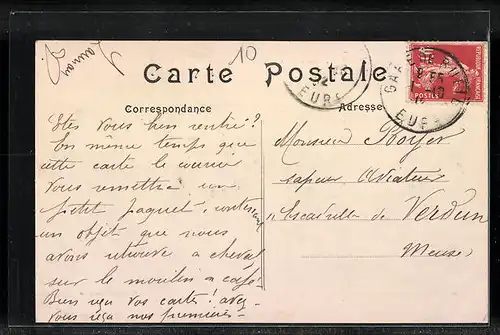 10
Carte Postale
Correspondance
Adresse
GARE DE
EURE
EURE
POSTES
Etes vous bien rentré?
En meme temps que
cette carte le courrier
vous remettra un
petit paquet, contenant
un objet que nous
avons retrouvé à cheval
sur le moulin a café.
Bien reçu vos cartes! avez-
vous reçu nos premières-
Monsieur Royer
sapeur Aviateur
"Escadrille de Verdun
Meuse